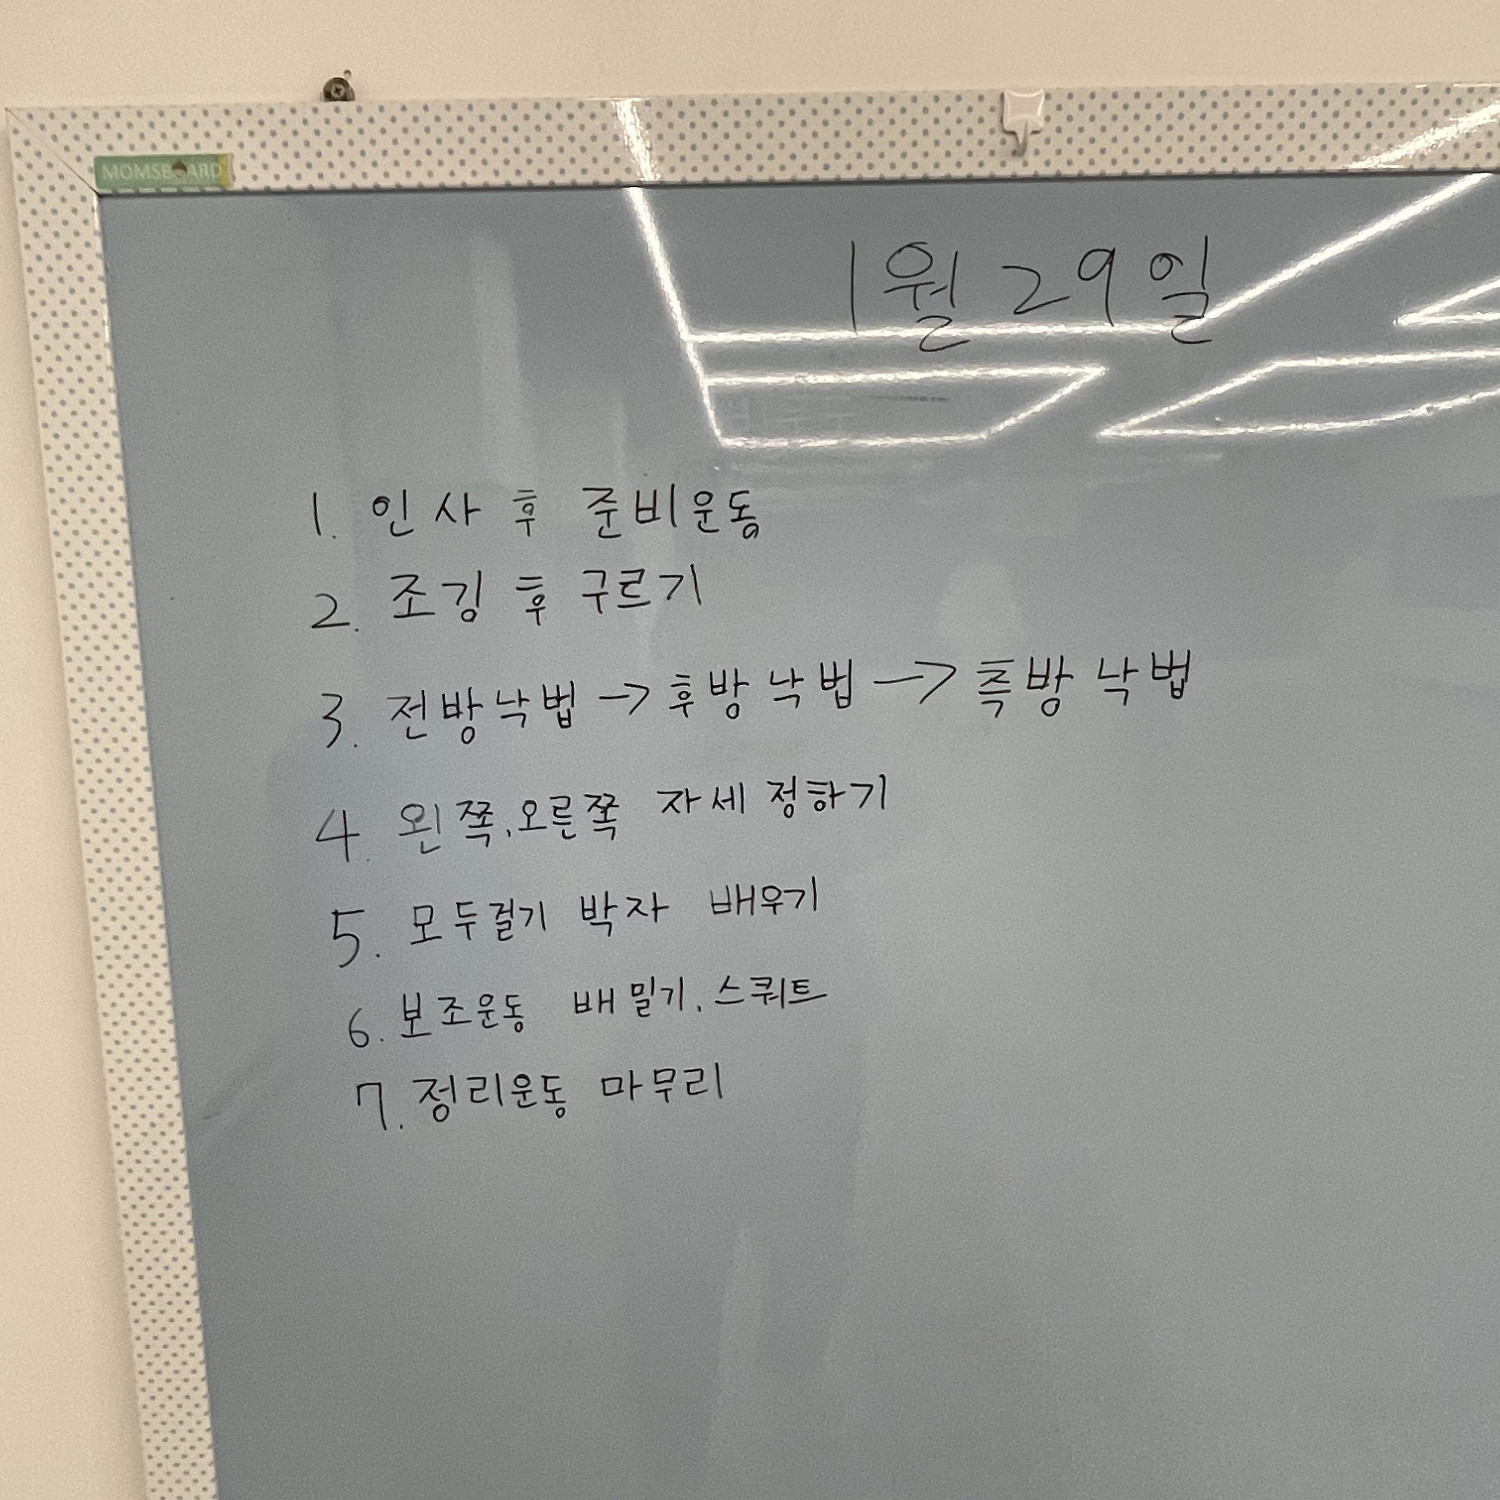 MOMSBOARD
1월 29일
1. 인사 후 준비운동
2. 조깅 후 구르기
3. 전방낙법 -> 후방낙법 -> 측방낙법
4. 왼쪽, 오른쪽 자세 정하기
5. 모두걸기 박자 배우기
6. 보조운동 배밀기, 스쿼트
7. 정리운동 마무리